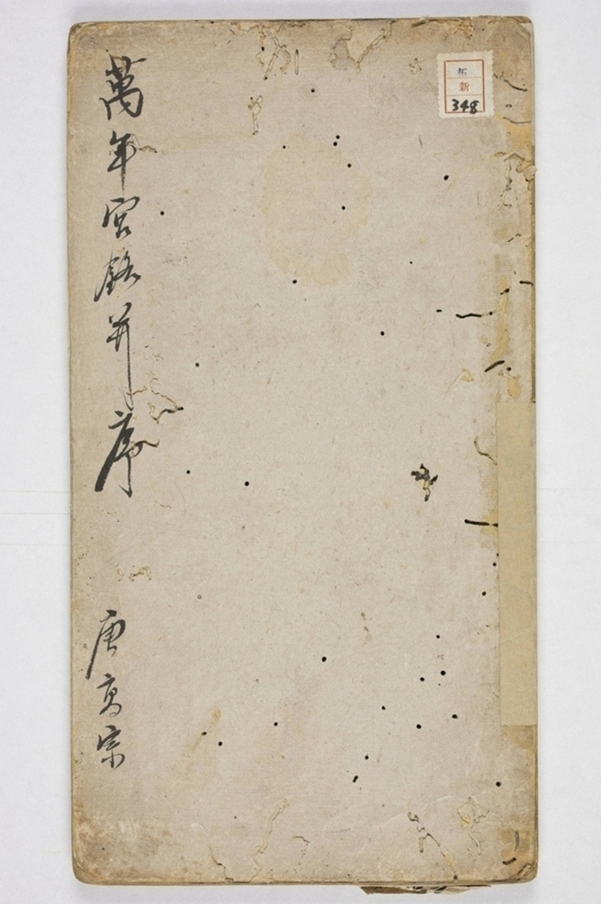 萬年宮銘并序
唐高宗
新
348